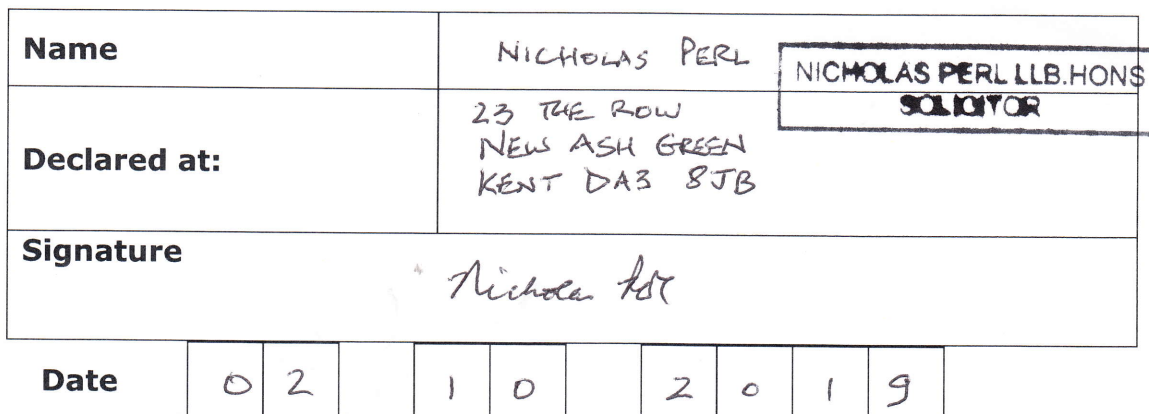 Name
NICHOLAS PERL
NICHOLAS PERL LLB.HONS
SOLICITOR
Declared at:
23 THE ROW
NEW ASH GREEN
KENT DA3 8JB
Signature
Nicholas Perl
Date 02 10 2019